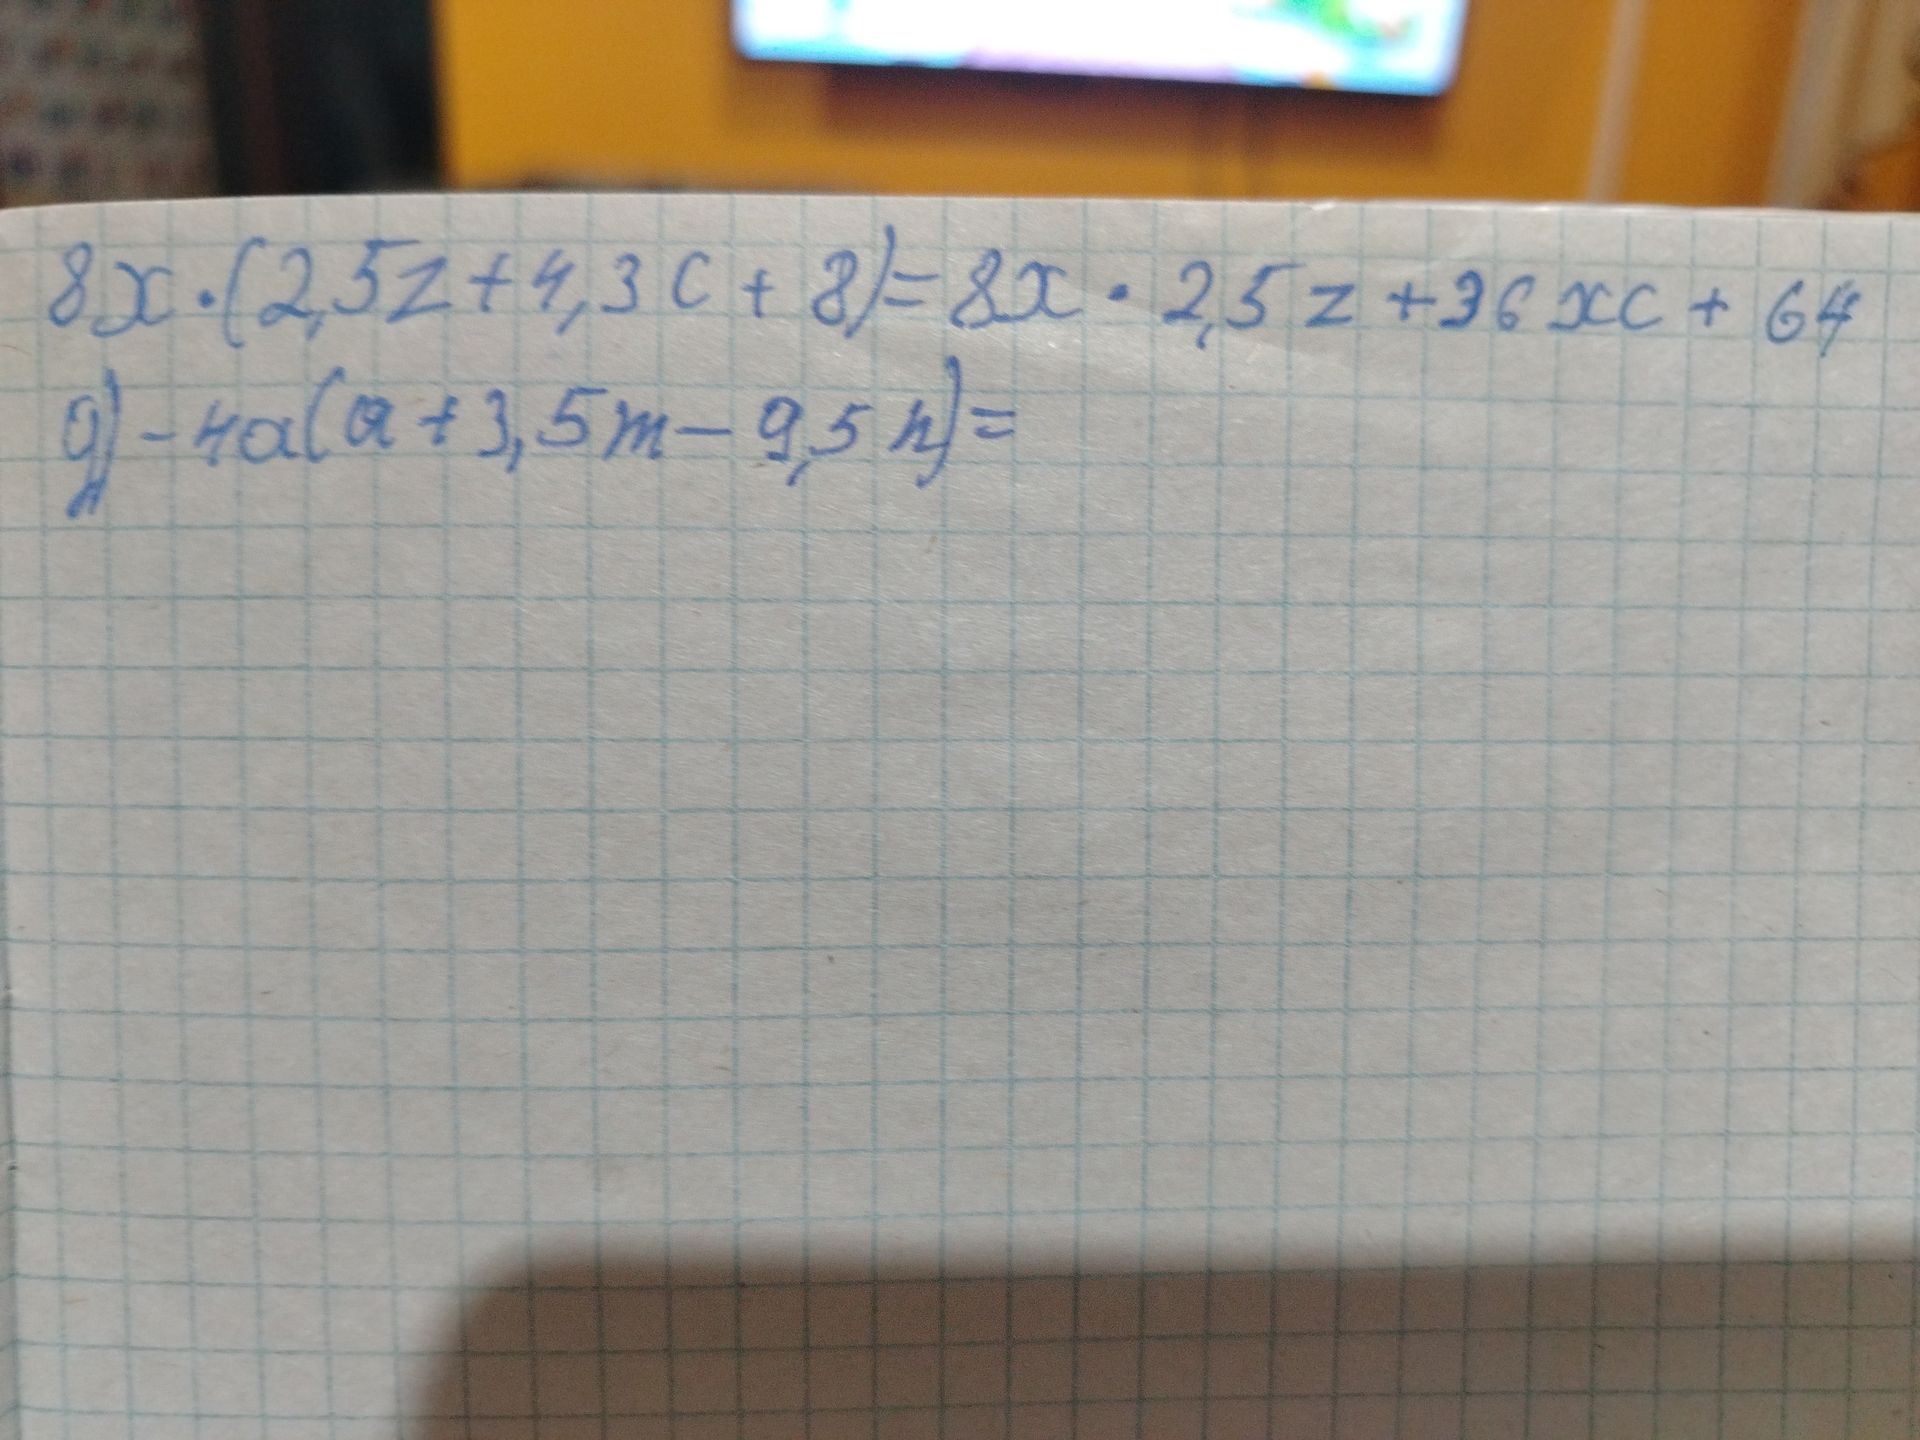 8x·(2,5z+4,3c+8)=8x·2,5z+36xc+64
д)-4a(a+3,5m-9,5n)=